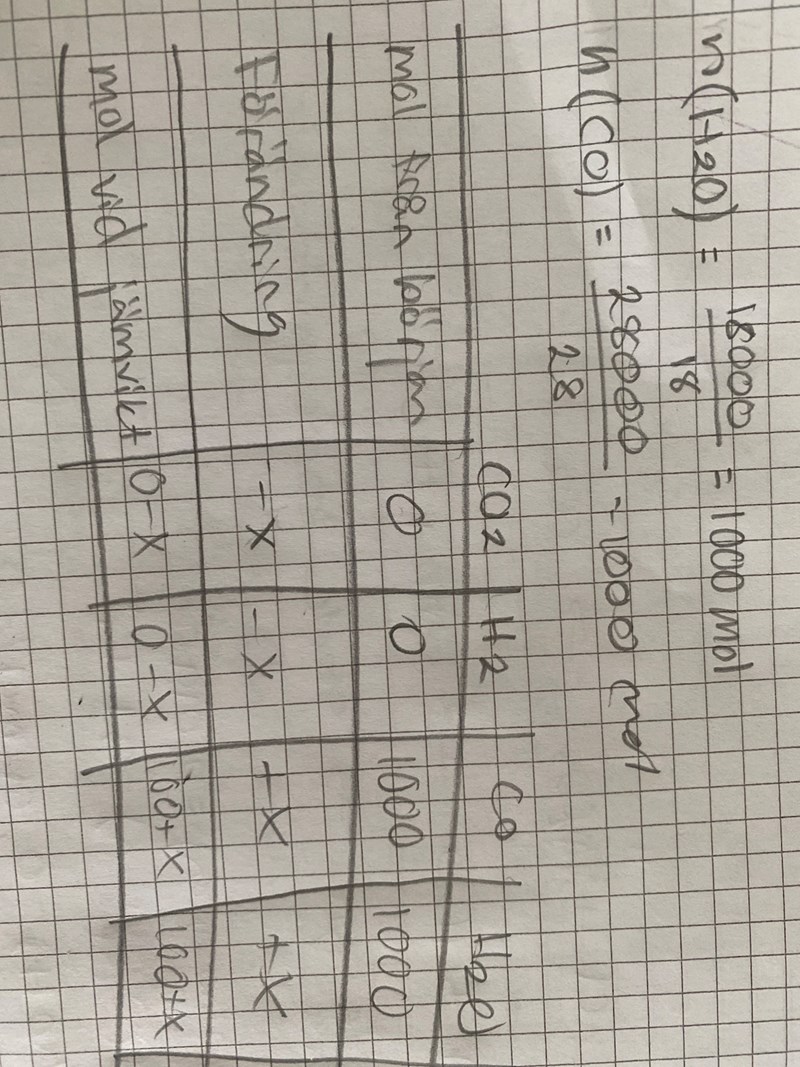 n(H2O) = 18000/18 = 1000 mol
n(CO) = 28000/28 - 1000 mol
CO2 H2 CO H2O
mol från början 0 0 1000 1000
Förändring -x -x +x +x
mol vid jämvikt 0-x 0-x 100+x 100+x